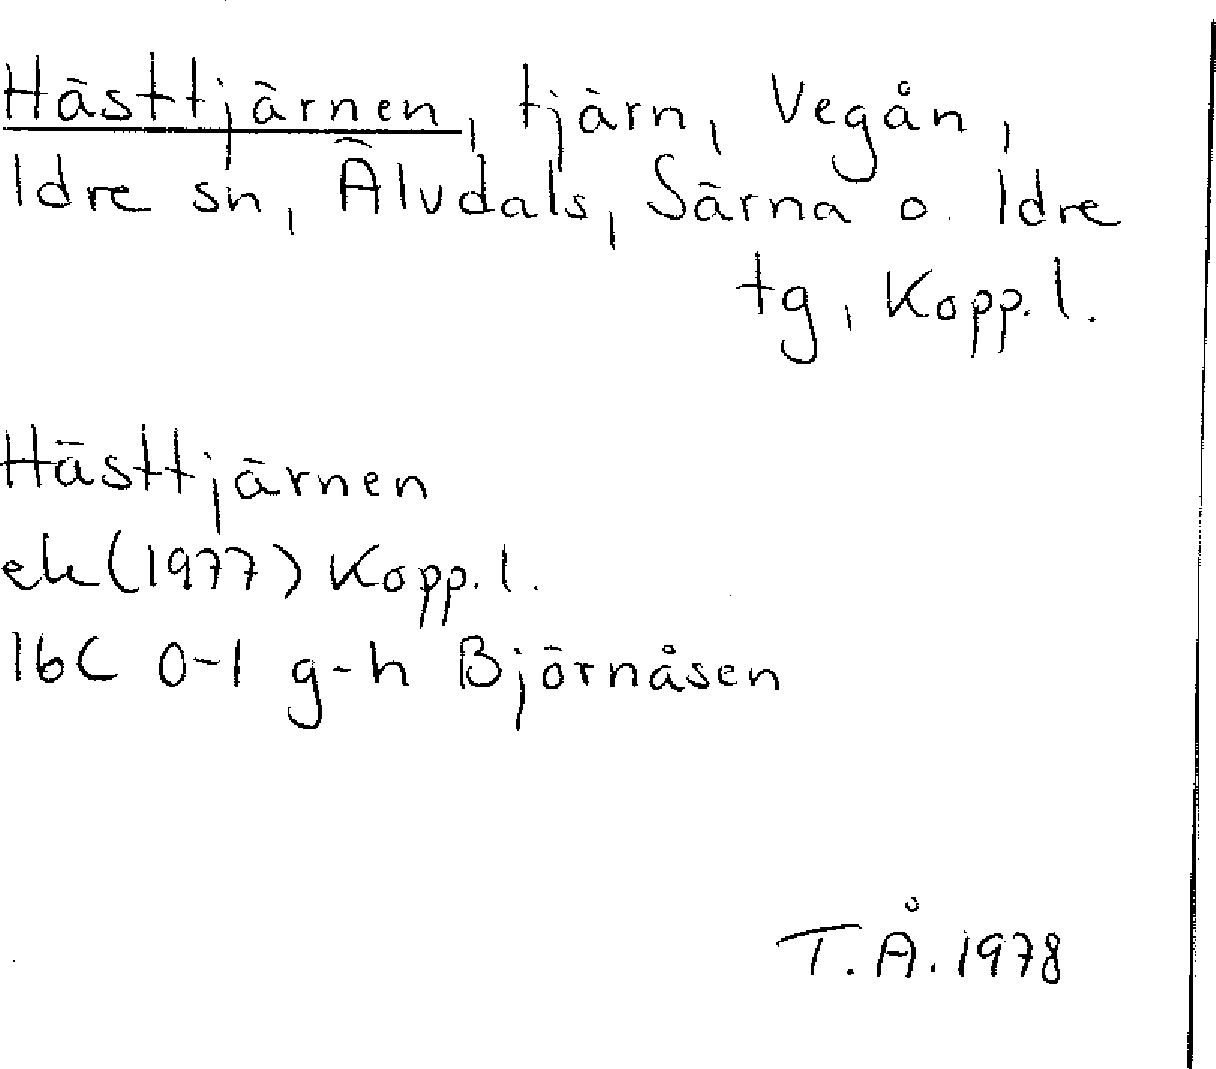 Hästtjärnen, tjärn, Vegån,
Idre sn, Älvdals, Särna o. Idre
tg, Kopp. l.
Hästtjärnen
ek (1977) Kopp. l.
16C 0-1 g-h Björnåsen
T. Å. 1978